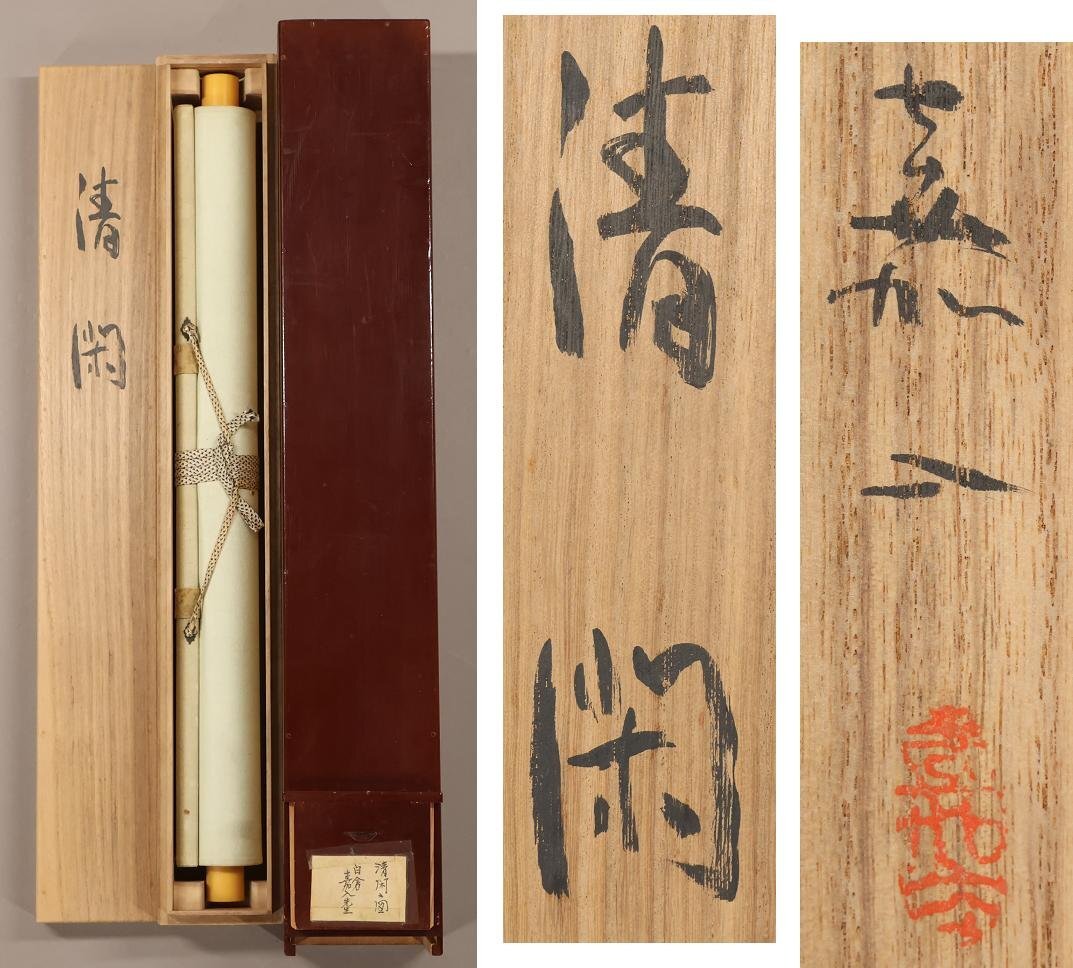 清閑
清閑
嘉入
清閑之圖
白倉
嘉入筆